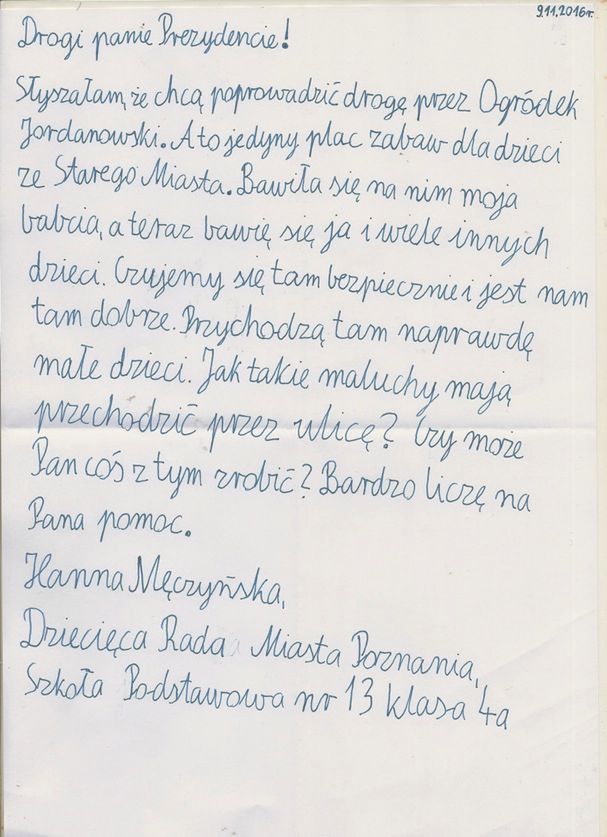 9.11.2016r.
Drogi panie Prezydencie!
Słyszałam, że chcą poprowadzić drogę przez Ogródek
Jordanowski. A to jedyny plac zabaw dla dzieci
ze Starego Miasta. Bawiła się na nim moja
babcia, a teraz bawię się ja i wiele innych
dzieci. Czujemy się tam bezpiecznie i jest nam
tam dobrze. Przychodzą tam naprawdę
małe dzieci. Jak takie maluchy mają
przechodzić przez ulicę? Czy może
Pan coś z tym zrobić? Bardzo liczę na
Pana pomoc.
Hanna Męczyńska,
Dziecięca Rada Miasta Poznania,
Szkoła Podstawowa nr 13 klasa 4a